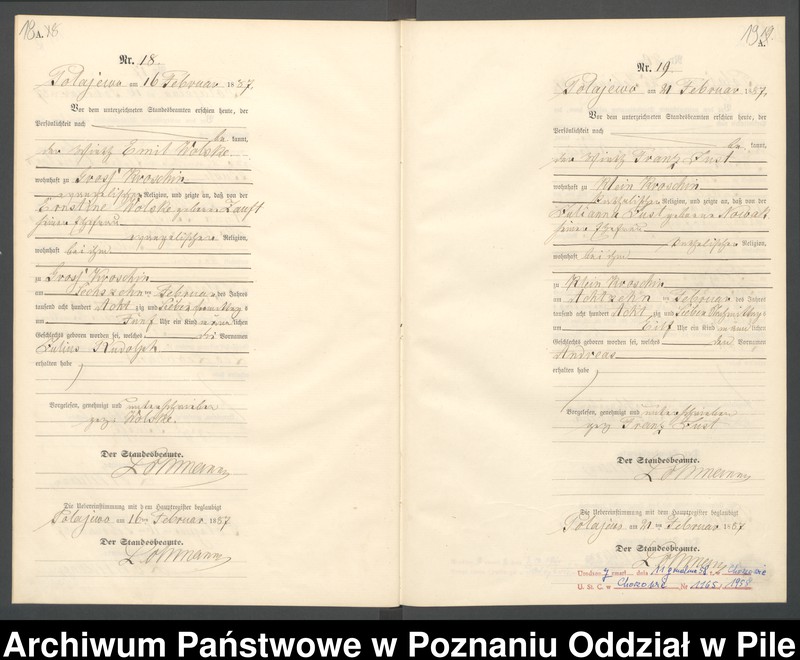 18
A. 18
Nr. 18.
Polajewo am 16 Februar 1887.
Vor dem unterzeichneten Standesbeamten erschien heute, der
Persönlichkeit nach
be kannt,
der Wirth Emil Kolske
wohnhaft zu Gross Kroschin
evangelischer Religion, und zeigte an, daß von der
Ernstine Kolske geborene Zauft
seiner Ehefrau
evangelischer Religion,
wohnhaft bei ihm
zu Gross Kroschin
am sechszehnten Februar des Jahres
tausend acht hundert Acht zig und Sieben
um Fünf Uhr ein Kind männlichen
Geschlechts geboren worden sei, welches den Vornamen
Julius Rudolph
erhalten habe
Vorgelesen, genehmigt und unterschrieben
gez. Kolske.
Der Standesbeamte.
Lohmann
Die Uebereinstimmung mit dem Hauptregister beglaubigt
Polajewo am 16ten Februar 1887
Der Standesbeamte.
Lohmann
19 19.
A.
Nr. 19
Polajewo am 21 Februar 1887,
Vor dem unterzeichneten Standesbeamten erschien heute, der
Persönlichkeit nach
be kannt,
der Wirth Franz Just
wohnhaft zu Klein Kroschin
katholischer Religion, und zeigte an, daß von der
Julianna Just geborene Nowak
seiner Ehefrau
katholischer Religion,
wohnhaft bei ihm
zu Klein Kroschin
am Achtzehn ten Februar des Jahres
tausend acht hundert Acht zig und Sieben
um Elf Uhr ein Kind männlichen
Geschlechts geboren worden sei, welches den Vornamen
Andreas
erhalten habe
Vorgelesen, genehmigt und unterschrieben
gez Franz Just
Der Standesbeamte.
Lohmann
Die Uebereinstimmung mit dem Hauptregister beglaubigt
Polajewo am 21ten Februar 1887
Der Standesbeamte.
Lohmann
y zmarł dnia 11 grudnia 58 r.
U. S. C. w Nr 1265/1958
Archiwum Państwowe w Poznaniu Oddział w Pile